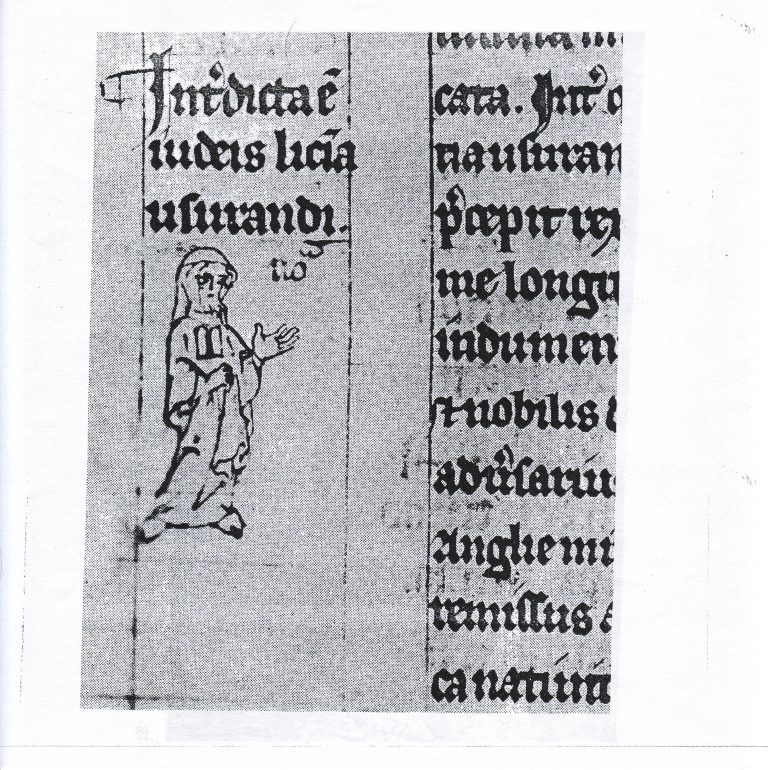 Int'dicta ē
iudeis licīa
usurandi.
cata. Int'
tia usuran
p'cepit rex
me longu
indumen
st nobilis
adu'sariu
Anglie mi
remissus